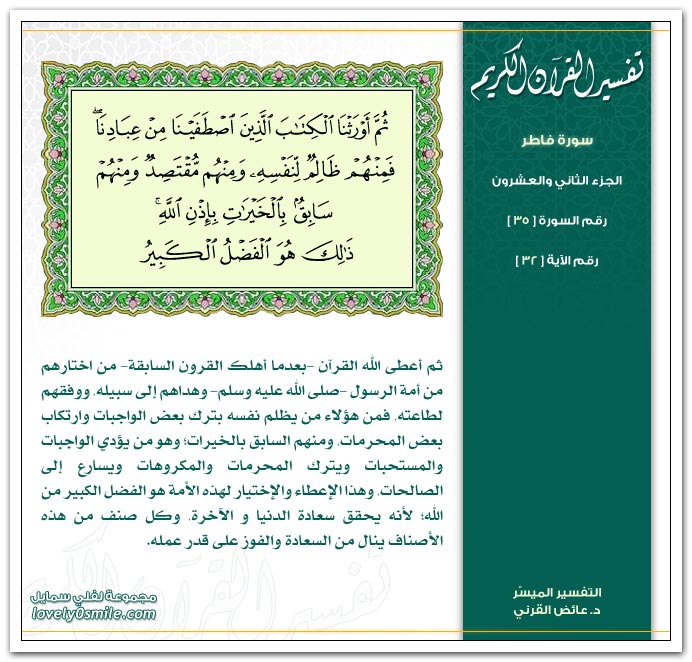 تفسير القرآن الكريم
سورة فاطر
الجزء الثاني والعشرون
رقم السورة [ ٣٥ ]
رقم الآية [ ٣٢ ]
ثُمَّ أَوْرَثْنَا ٱلْكِتَٰبَ ٱلَّذِينَ ٱصْطَفَيْنَا مِنْ عِبَادِنَا ۖ
فَمِنْهُمْ ظَالِمٌ لِّنَفْسِهِۦ وَمِنْهُم مُّقْتَصِدٌ وَمِنْهُمْ
سَابِقٌۢ بِٱلْخَيْرَٰتِ بِإِذْنِ ٱللَّهِ ۚ
ذَٰلِكَ هُوَ ٱلْفَضْلُ ٱلْكَبِيرُ
ثم أعطى الله القرآن -بعدما أهلك القرون السابقة- من اختارهم
من أمة الرسول -صلى الله عليه وسلم- وهداهم إلى سبيله، ووفقهم
لطاعته، فمن هؤلاء من يظلم نفسه بترك بعض الواجبات وارتكاب
بعض المحرمات، ومنهم السابق بالخيرات؛ وهو من يؤدي الواجبات
والمستحبات ويترك المحرمات والمكروهات ويسارع إلى
الصالحات، وهذا الإعطاء والإختيار لهذه الأمة هو الفضل الكبير من
الله؛ لأنه يحقق سعادة الدنيا و الآخرة، وكل صنف من هذه
الأصناف ينال من السعادة والفوز على قدر عمله.
التفسير الميسّر
د. عائض القرني
مجموعة لفلي سمايل
lovely0smile.com
تفسير القرآن الكريم